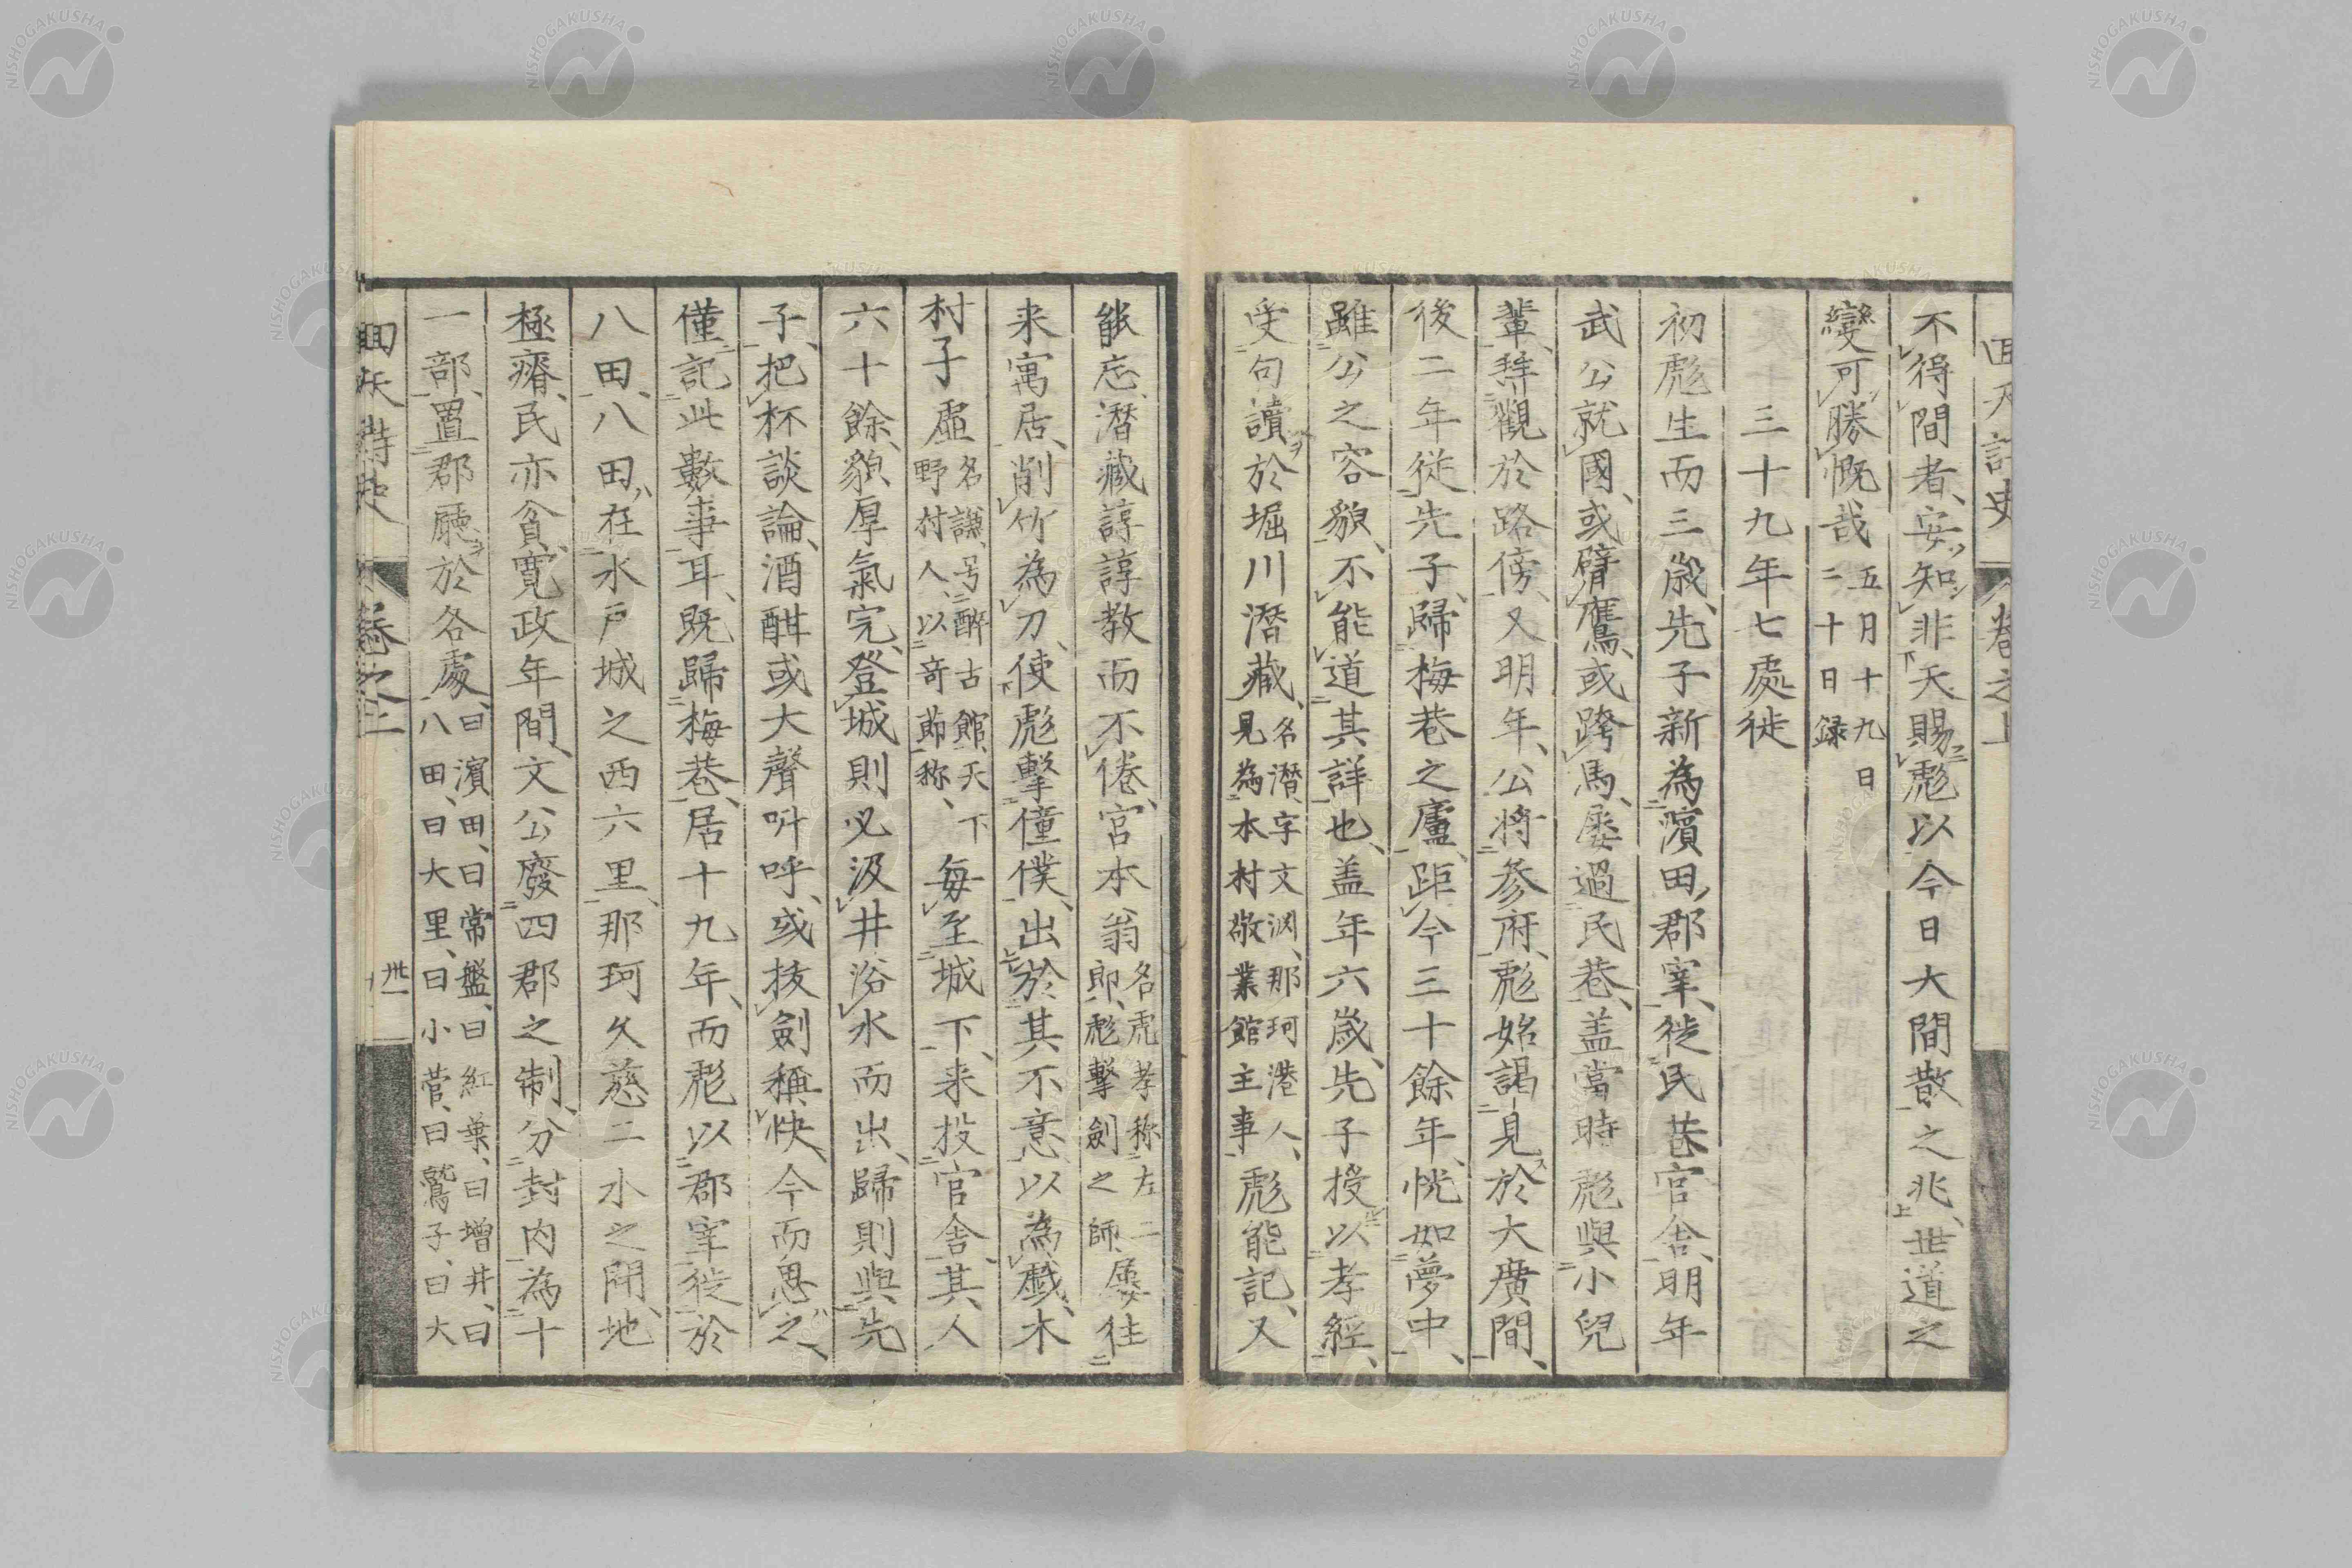 回天詩史 卷之上
不得間者、安知非天賜彪以今日大閒散之兆、世道之
變可勝慨哉 五月十九日
二十日録
三十九年七處徙
初彪生而三歳、先子新為濱田郡宰、徙民巷官舎、明年
武公就國、或臂鷹、或跨馬、屡過民巷、盖當時彪與小兒
輩、拜觀於路傍、又明年、公將參府、彪始謁見於大廣間、
後二年從先子、歸梅巷之廬、距今三十餘年、恍如夢中、
雖公之容貌、不能道其詳也、盖年六歳、先子授以孝經、
受句讀於堀川潛藏、名潛、字文淵、那珂港人、
見為本村敬業館主事、彪能記、又
能忘、潛藏諄諄教而不倦、宮本翁 名虎孝称左二
郎、彪擊劍之師、屡往
来寓居、削竹為刀、使彪擊僮僕、出於其不意、以為戲、木
村子虚 名謙、号醉古館、天下
野村人、以奇節称、毎至城下、来投官舎、其人
六十餘、貌厚氣完、登城則必汲井浴水而出、歸則與先
子、把杯談論、酒酣或大聲叫呼、或抜劍稱快、今而思之、
僅記此數事耳、既歸梅巷、居十九年、而彪以郡宰徙於
八田、八田在水戸城之西六里、那珂久慈二水之間、地
極瘠、民亦貧、寛政年間、文公廢四郡之制、分封内為十
一部、置郡廳於各處、曰濱田、曰常盤、曰紅葉、曰增井、曰
八田、曰大里、曰小菅、曰鷲子、曰大
回天詩史 卷之上 卅一